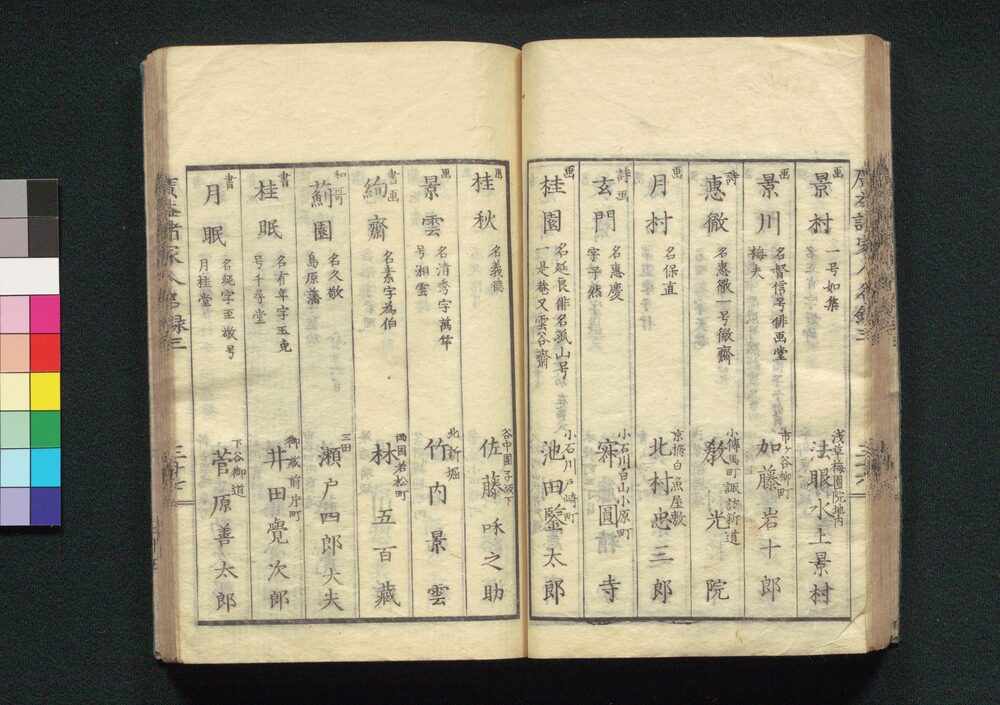 画
景村
一号如集
浅草梅園院地内
法眼水上景村
画
景川
名督信号俳画堂
梅夫
市ヶ谷柳町
加藤岩十郎
詩
惠徹
名惠徹一号徹齋
小傳馬町諏訪新道
教光院
画
月村
名保直
京橋白魚屋敷
北村忠三郎
詩画
玄門
名惠慶
字子然
小石川白山小原町
寂圓寺
画
桂園
名延良俳名孤山号
一是菴又雲谷齋
小石川戸崎町
池田鑒太郎
画
桂秋
名義穂
谷中團子坂下
佐藤咊之助
画
景雲
名清秀字萬年
号湘雲
北新堀
竹内景雲
書画
絢齋
名素字為伯
両国若松町
林五百藏
和哥
薊園
名久敬
島原藩
三田
瀬戸四郎大夫
書
桂眠
名有年字玉免
号千尋堂
御蔵前片町
井田覺次郎
書
月眠
名繩字至敬号
月桂堂
下谷御道
菅原善太郎
廣益諸家人名録三